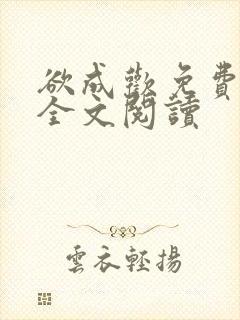 欲成歡免費
全文閱讀
雲衣輕揚